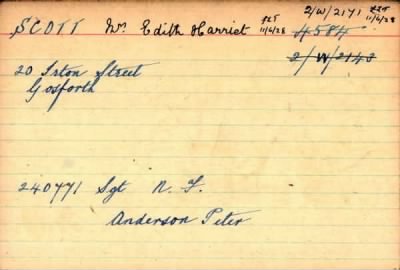 2/W/2171 11/6/28
SCOTT Mrs Edith Harriet 11/6/28 4584
20 Irton Street 2/W/2143
Gosforth
240771 Sgt N. F.
Anderson Peter